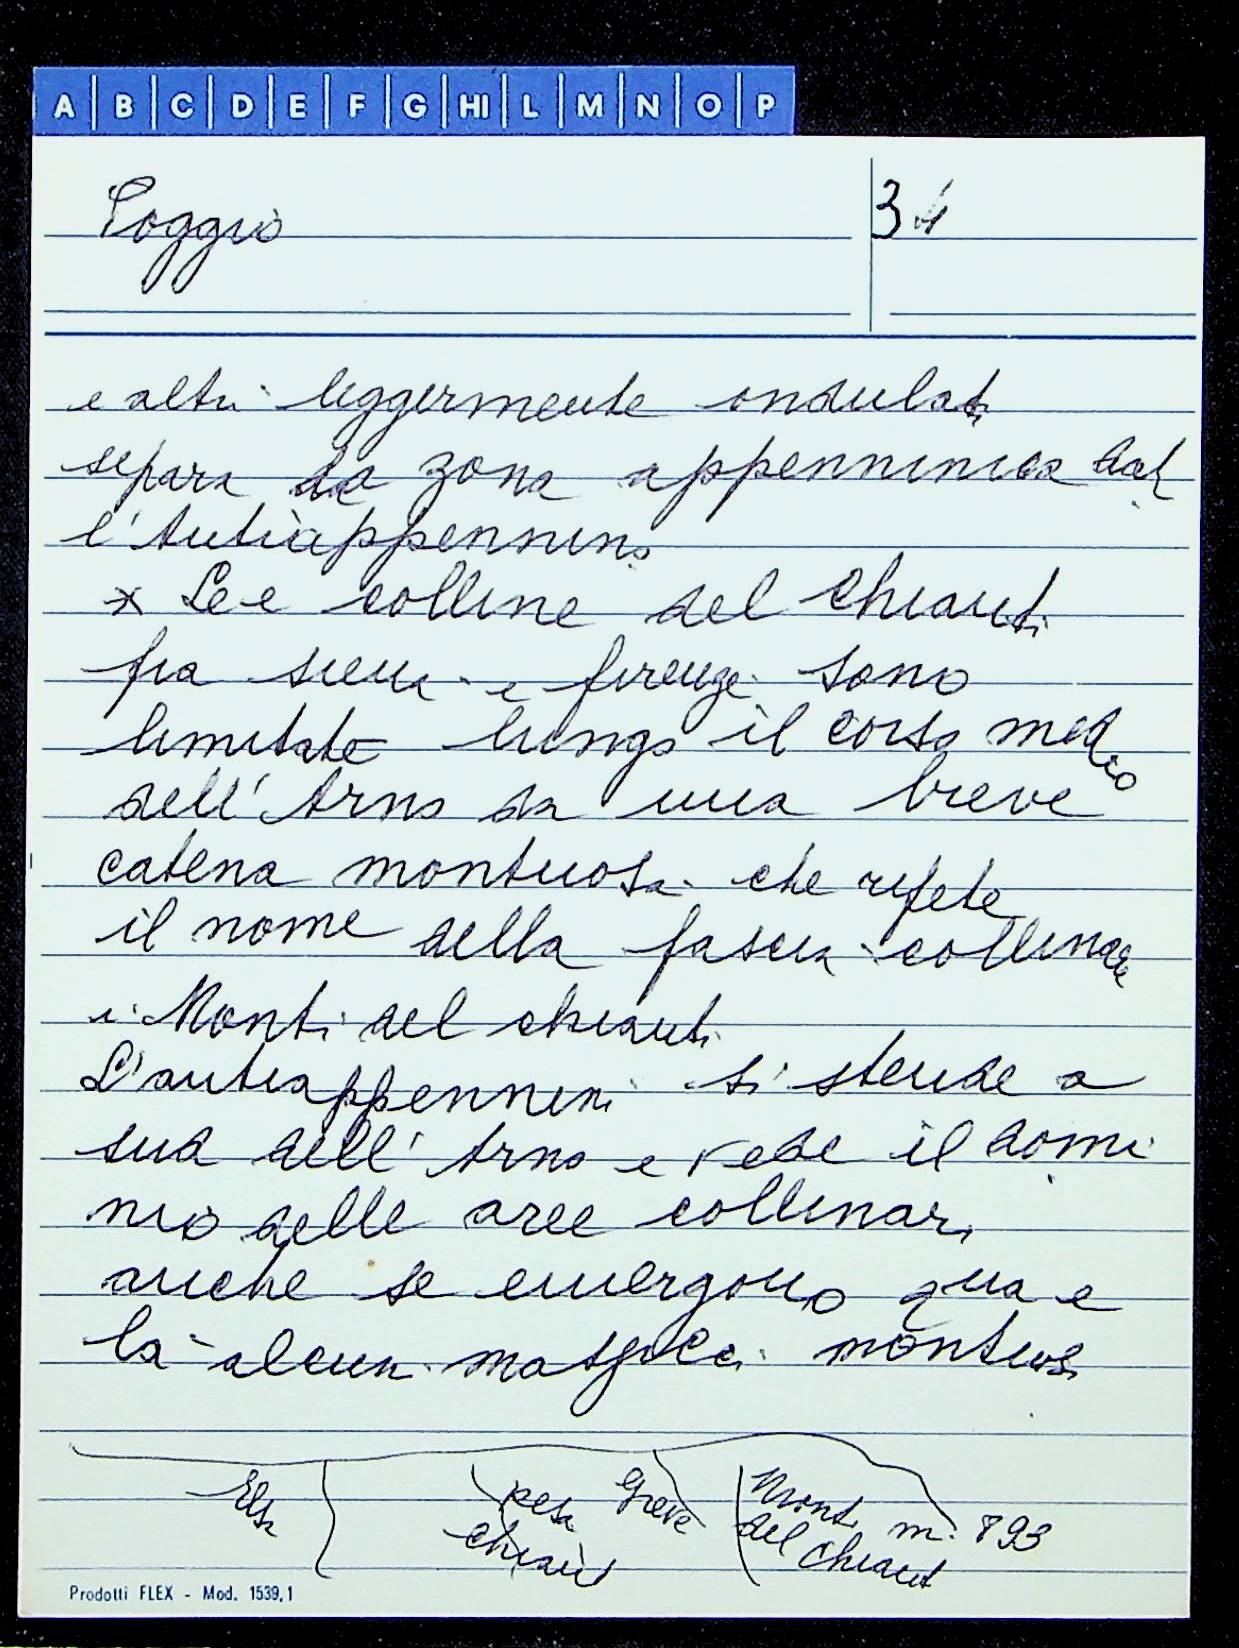 A B C D E F G HI L M N O P
Poggio 34
e altri leggermente ondulati
separa la zona appenninica dal
l'Antiappennino
x Le e colline del Chianti
fra siena e firenze sono
limitate lungo il corso medio
dell'Arno da una breve
catena montuosa che ripete
il nome della fascia collinare
i Monti del chianti
L'antiappennini si stende a
sud dell'Arno e vede il domi
nio delle aree collinari
anche se emergono qua e
là alcuni massicci montuosi
Elsa pesa Greve Monti m. 893
chianti del chianti
Prodotti FLEX - Mod. 1539,1